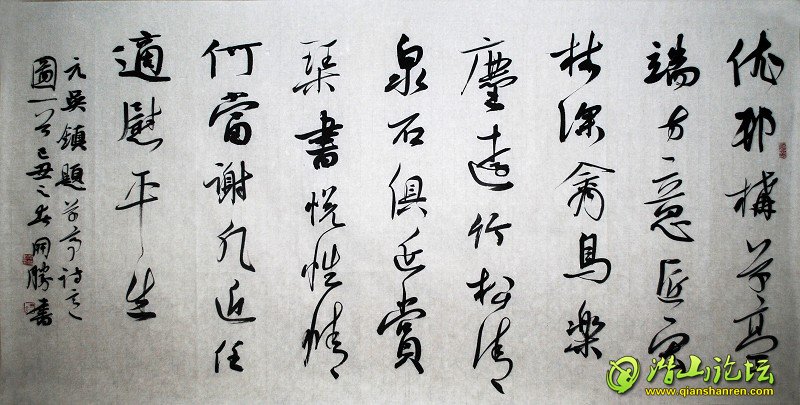 依邨構草亭
端方意匠宏
林深禽鳥樂
塵遠竹松清
泉石俱延賞
琴書悦性情
何當謝凡近任
適慰平生
元吳鎮題草亭詩意
圖一首己丑之春開勝書
潜山论坛
www.qianshanren.com